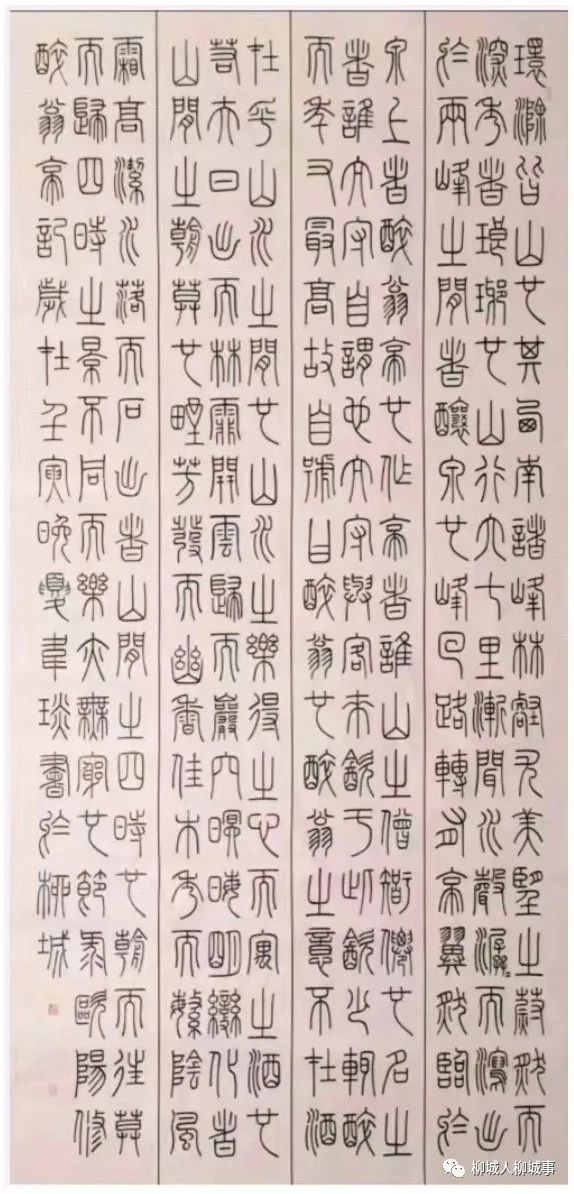 環滁皆山也其西南諸峰林壑尤美望之蔚然而
深秀者瑯琊也山行六七里漸聞水聲潺潺而瀉出
於兩峰之間者釀泉也峰回路轉有亭翼然臨於
泉上者醉翁亭也作亭者誰山之僧智僊也名之
者誰太守自謂也太守與客來飲于此飲少輒醉
而年又最高故自號曰醉翁也醉翁之意不在酒
在乎山水之間也山水之樂得之心而寓之酒也
若夫日出而林霏開雲歸而巖穴暝晦明變化者
山間之朝莫也野芳發而幽香佳木秀而繁陰風
霜高潔水落而石出者山間之四時也朝而往莫
而歸四時之景不同而樂亦無窮也節錄歐陽修
醉翁亭記歲在壬寅晚夏韋琰書於柳城
柳城人柳城事